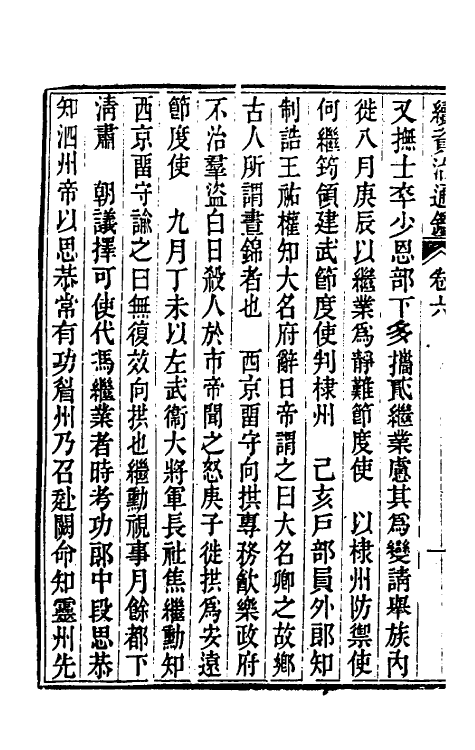 續資治通鑑 卷六 一
又撫士卒少恩部下多攜貳繼業慮其爲變請舉族內
徙八月庚辰以繼業爲靜難節度使　以棣州防禦使
何繼筠領建武節度使判棣州　己亥戶部員外郎知
制誥王祐權知大名府辭日帝謂之曰大名卿之故鄉
古人所謂晝錦者也　西京畱守向拱專務飮樂政府
不治羣盜白日殺人於市帝聞之怒庚子徙拱爲安遠
節度使　九月丁未以左武衞大將軍長社焦繼勳知
西京畱守諭之曰無復效向拱也繼勳視事月餘都下
淸肅　朝議擇可使代馮繼業者時考功郎中段思恭
知泗州帝以思恭常有功眉州乃召赴闕命知靈州先